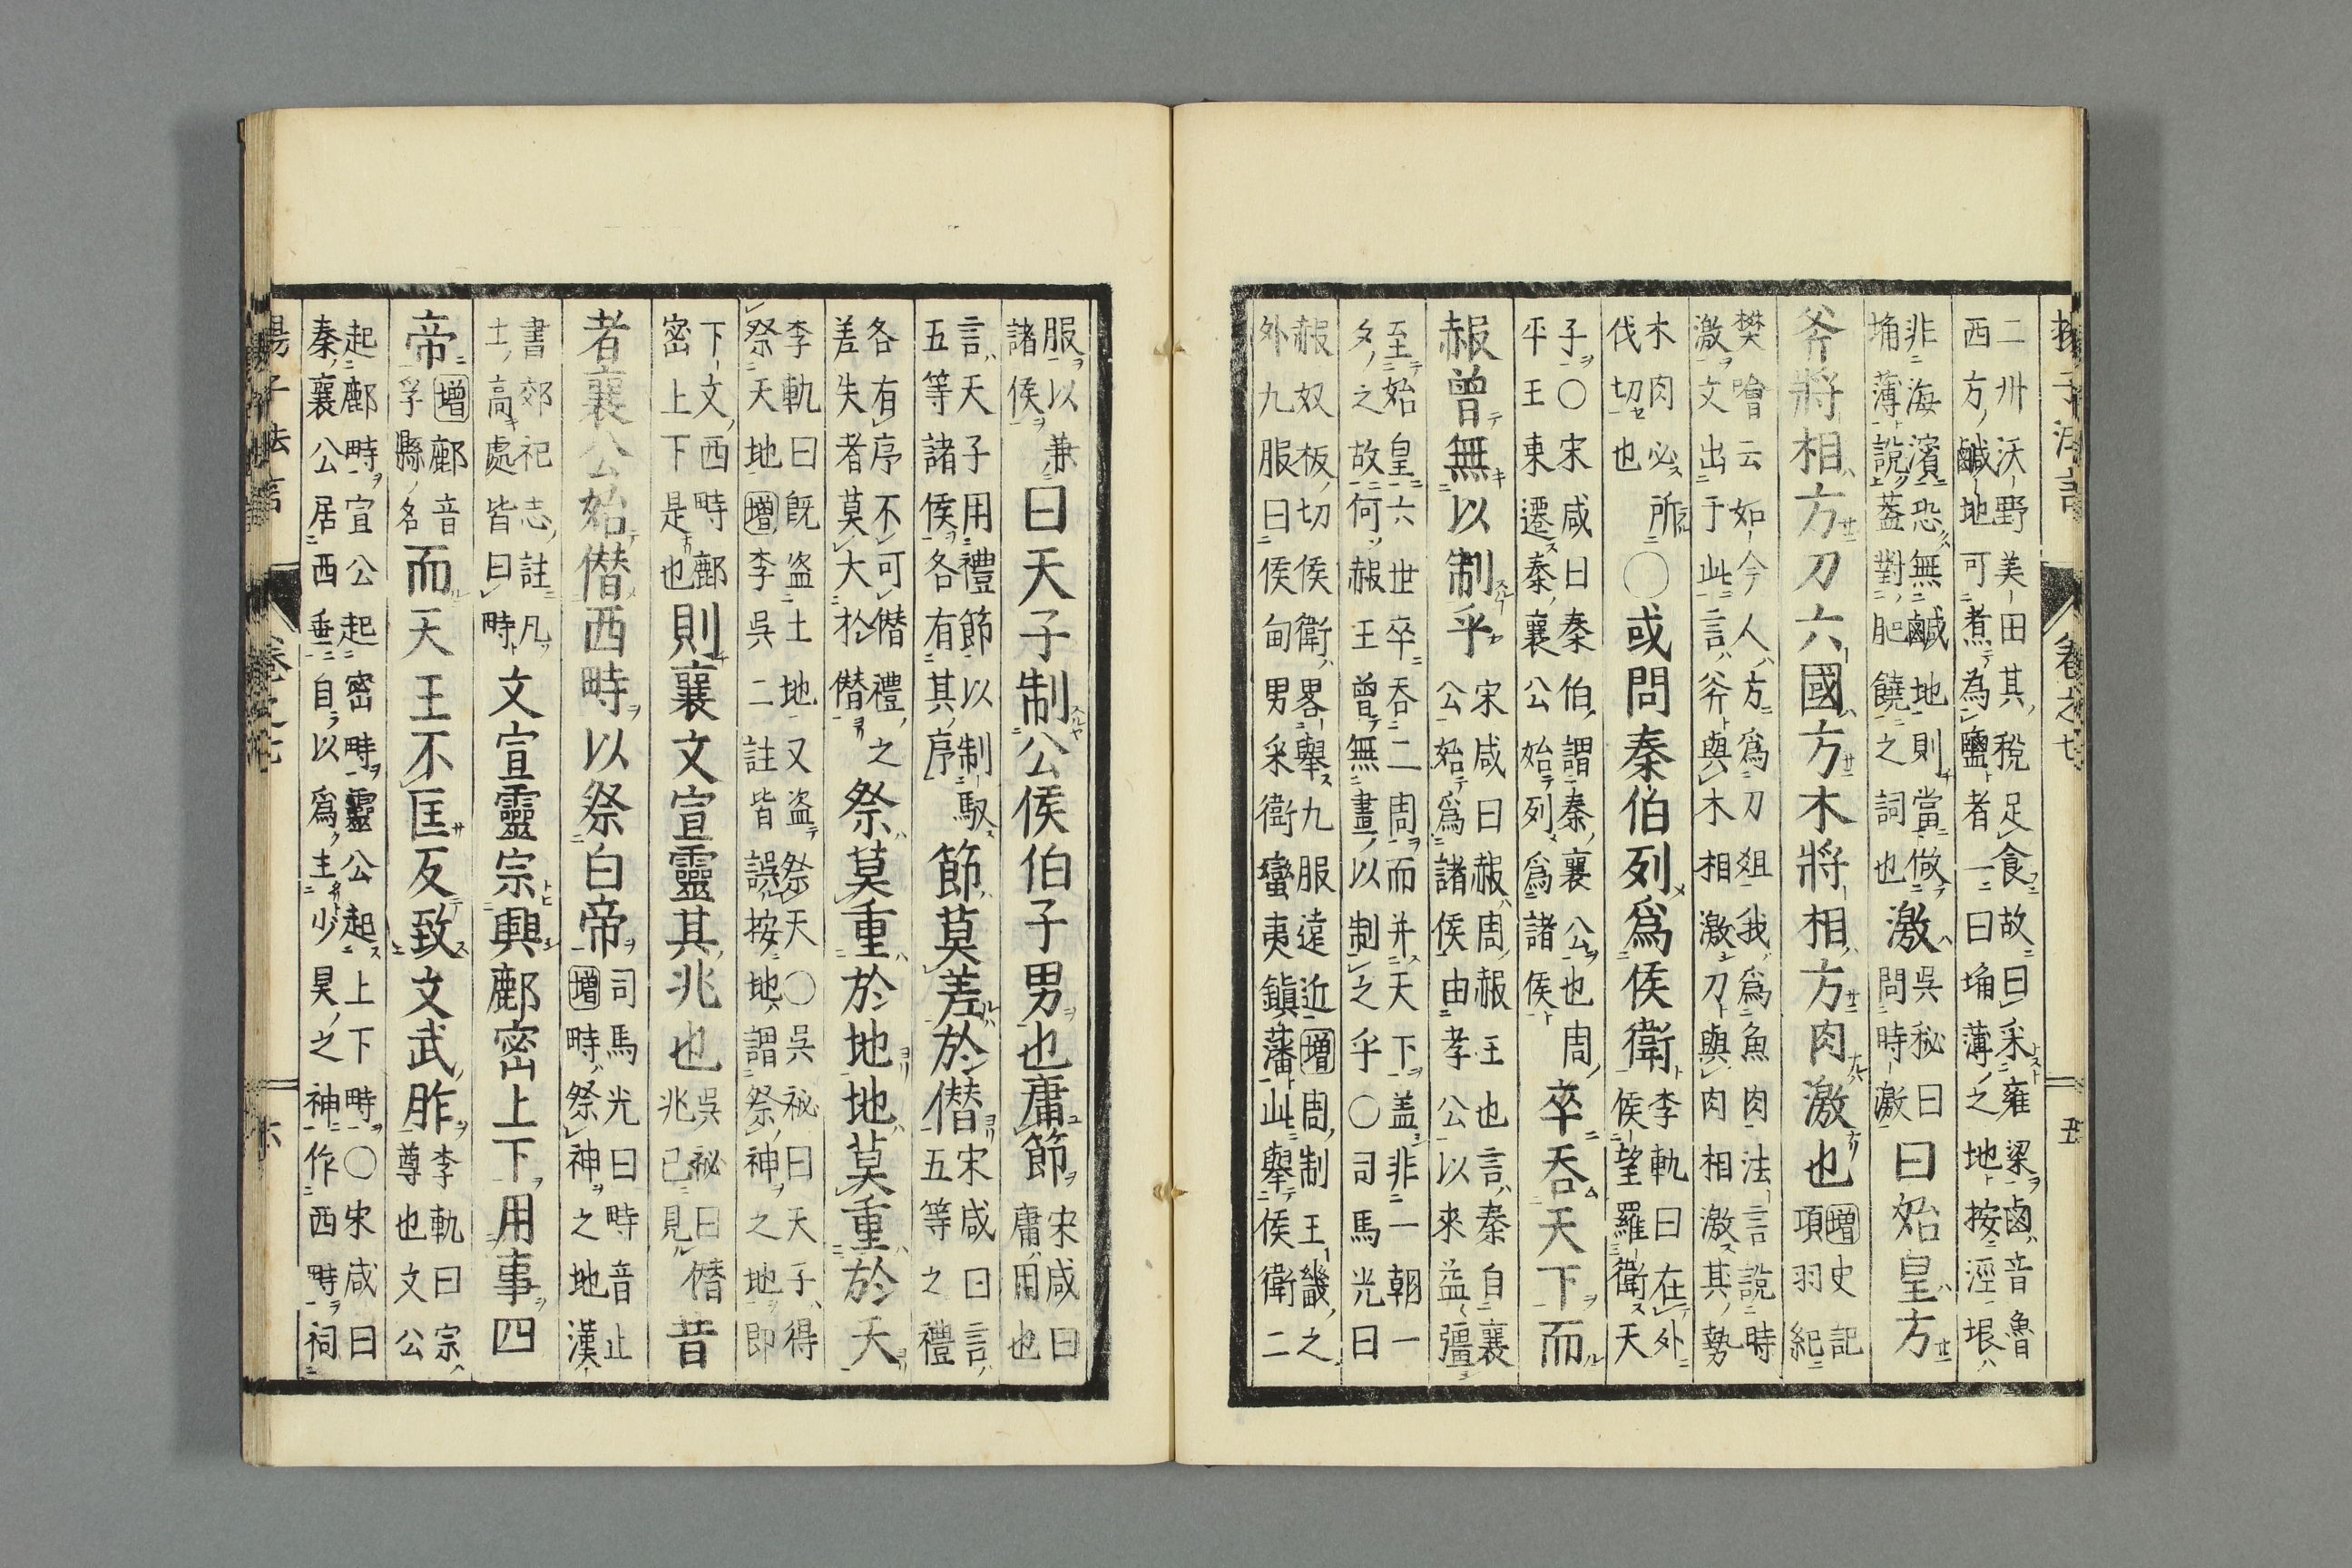 子法言 卷之七 五
二卅沃野美田其稅足食故曰采雍梁鹵音魯
西方鹹地可煮為鹽者一曰埇薄之地按涇垠
非海濱恐無鹹地則當做
埇薄說葢對肥饒之詞也
激
吳秘曰
問時激
曰始皇方
斧將相方刀六國方木將相方肉激也
增史記
項羽紀
樊噲云如今人方爲刀俎我爲魚肉法言說時
激文出于此言斧與木相激刀與肉相激其勢
木肉必所
伐切也
○或問秦伯列爲侯衛
李軌曰在外
候望羅衛天
子○宋咸曰秦伯謂秦襄公也周
平王東遷秦襄公始列爲諸侯
卒吞天下而
赧曾無以制乎
宋咸曰赧周赧王也言秦自襄
公始爲諸侯由孝公以來益彊
至始皇六世卒吞二周而并天下盖非一朝一
夕之故何赧王曾無畫以制之乎○司馬光曰
赧奴板切侯衛畧舉九服遠近增周制王畿之
外九服曰侯甸男采衛蠻夷鎮藩此舉侯衛二
服以兼
諸侯
曰天子制公侯伯子男也庸節
宋咸曰
庸用也
言天子用禮節以制馭
五等諸侯各有其序
節莫差於僭
宋咸曰言
五等之禮
各有序不可僭禮之
差失者莫大於僭
祭莫重於地地莫重於天
李軌曰既盗土地又盗祭天○吳祕曰天子得
祭天地增李吳二註皆誤按地謂祭神之地即
下文西畤鄜
密上下是也
則襄文宣靈其兆也
吳祕曰僭
兆已見
昔
者襄公始僭西畤以祭白帝
司馬光曰畤音止
增畤祭神之地漢
書郊祀志註凡
土高處皆曰畤
文宣靈宗興鄜密上下用事四
帝
增鄜音
孚縣名
而天王不匡反致文武胙
李軌曰宗
尊也文公
起鄜畤宣公起密畤靈公起上下畤○宋咸曰
秦襄公居西垂自以爲主少昊之神作西畤祠
揚子法言 卷之七 六